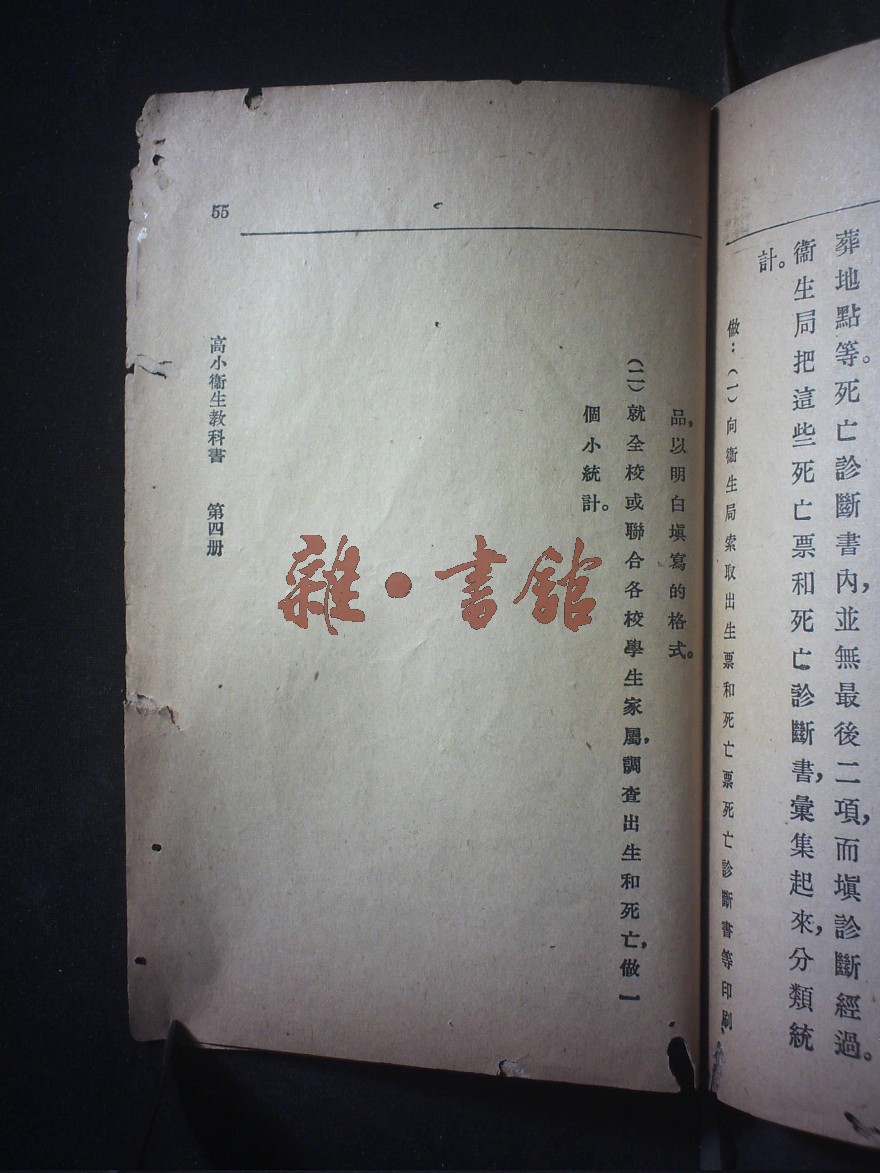 葬地點等。死亡診斷書內，並無最後二項，而塡診斷經過。
衞生局把這些死亡票和死亡診斷書，彙集起來，分類統
計。
做：（一）向衞生局索取出生票和死亡票死亡診斷書等印刷
品，以明白塡寫的格式。
（二）就全校或聯合各校學生家屬，調查出生和死亡，做一
個小統計。
雜·書館
高小衞生教科書　第四册
55